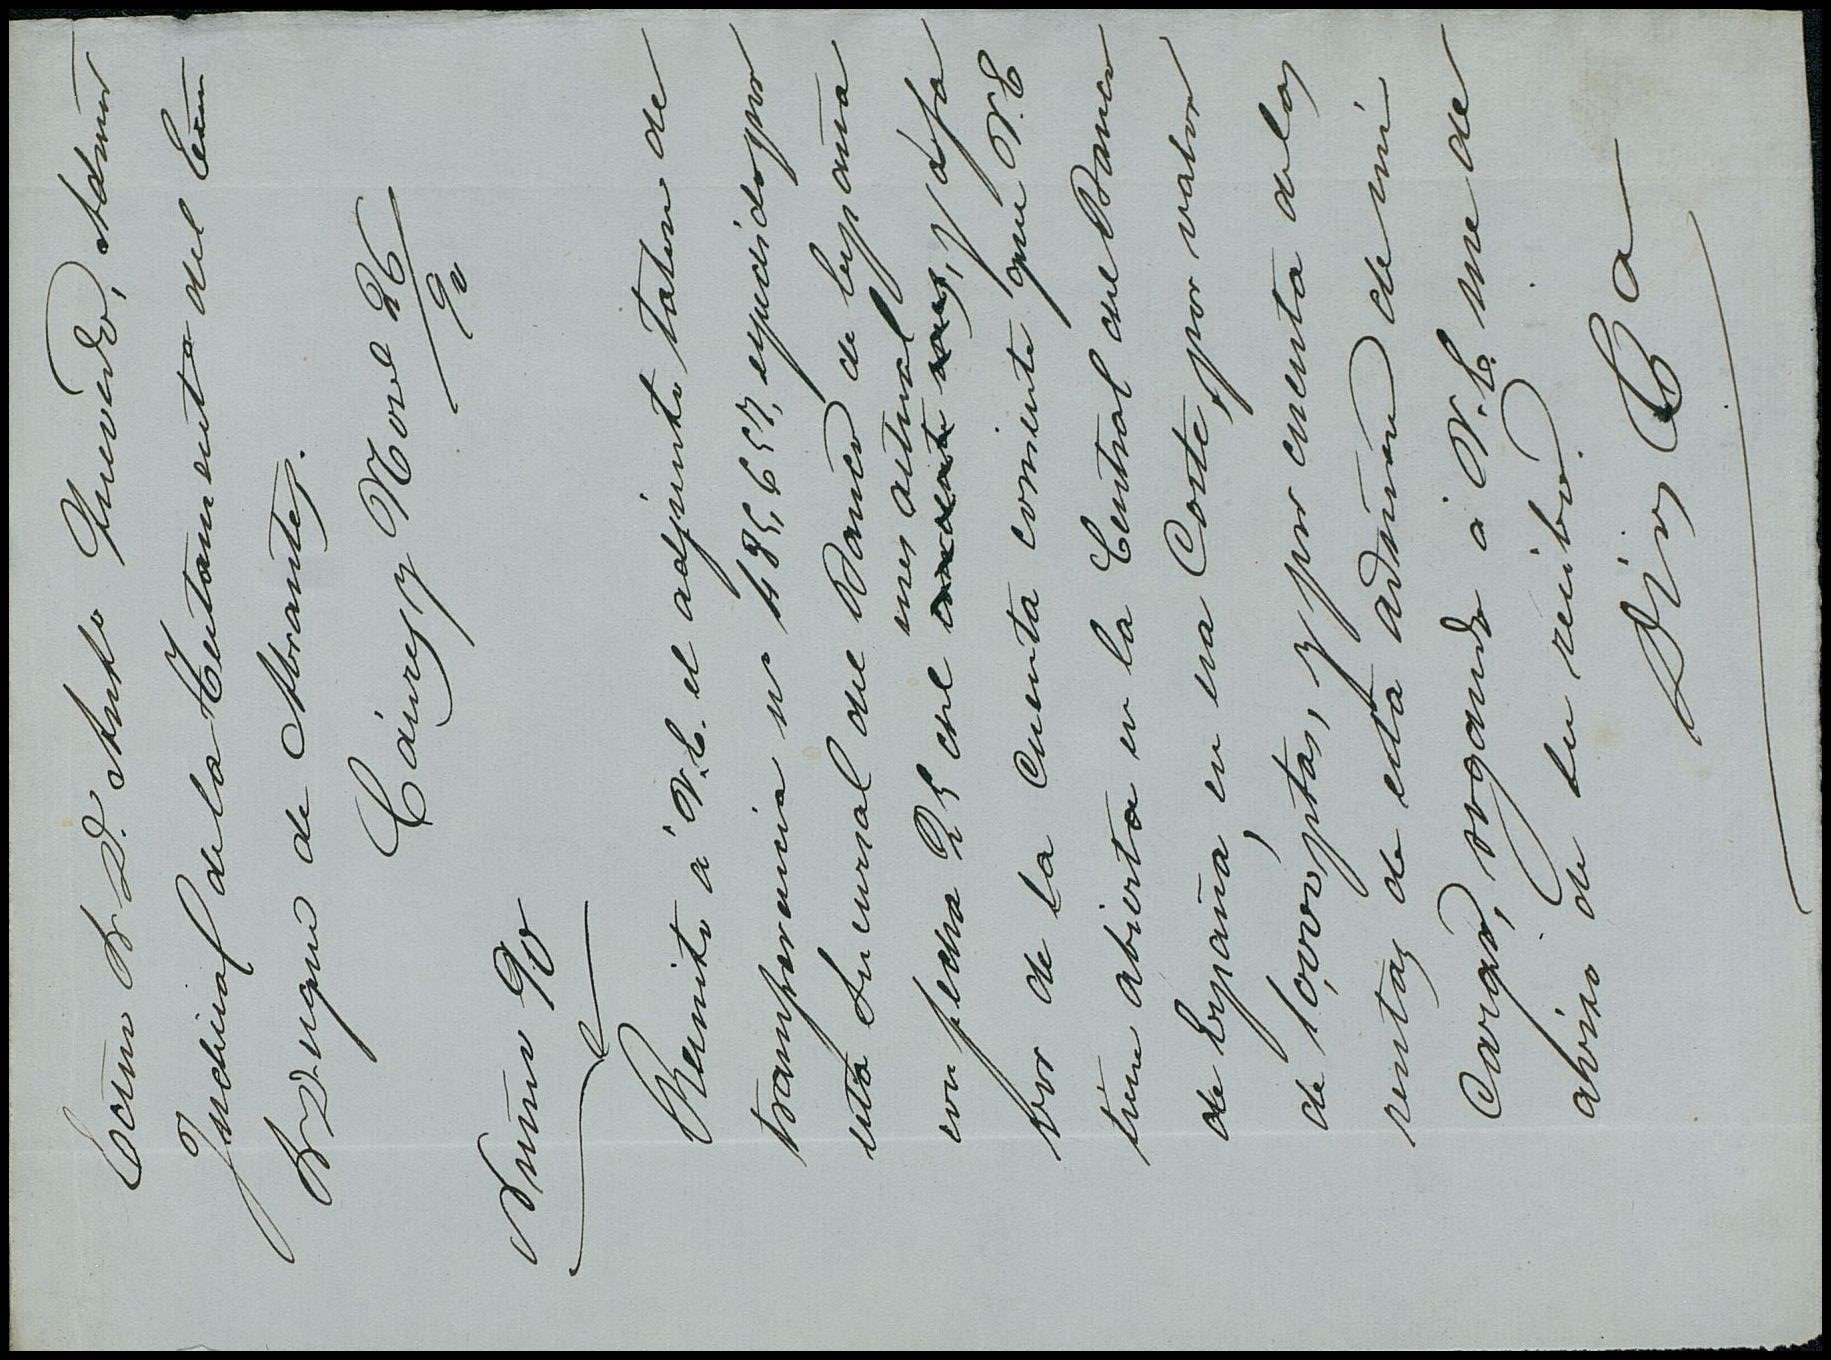 Excmo Sr D. Anto Quevedo, Admor
Judicial de la Testamenta del Exmo
Sr Duque de Abrantes.
Cáceres y Nove 26/90
Núm 90
Remito á V.E. el adjunto talon de
transferencia nº 485,657, expedido por
esta Sucursal del Banco de España
mes actual
con fecha 25 del corriente mes, y á fa
vor de la cuenta corriente que V.E
tiene abierta en la Central del Banco
de España, en esa Corte, por valor
de 10,000 ptas, y por cuenta de las
rentas de esta admon de mi
cargo, rogando á V.E. me de
aviso de su recibo.
Dios &a